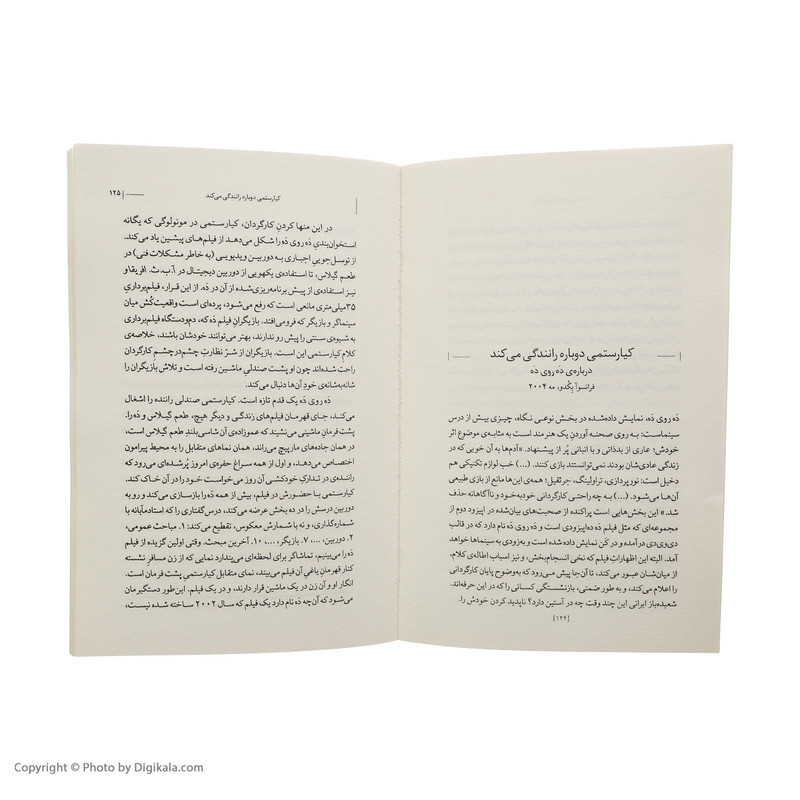 کیارستمی دوباره رانندگی می‌کند
درباره‌ی دَه روی دَه
فرانسوآ بِگُدو، مه ۲۰۰۴
دَه روی دَه، نمایش داده‌شده در بخش نوعی نگاه، چیزی بیش از درس
سینماست: به روی صحنه آوردنِ یک هنرمند است به مثابه‌ی موضوعِ اثر
خودش؛ عاری از بدذاتی و با انبانی پُر از پیشنهاد. «آدم‌ها به آن خوبی که در
زندگی عادی‌شان بودند نمی‌توانستند بازی کنند. (...) خب لوازم تکنیکی هم
دخیل است: نورپردازی، تراولینگ، جرثقیل؛ همه‌ی این‌ها مانع از بازی طبیعی
آن‌ها می‌شود. (...) به چه راحتی کارگردانی خودبه‌خود و ناآگاهانه حذف
شد.» این بخش‌هایی است پراکنده از صحبت‌های بیان‌شده در اپیزود دوم از
مجموعه‌ای که مثل فیلم دَه ده‌اپیزودی است و دَه روی دَه نام دارد که در قالب
دی‌وی‌دی درآمده و در کَن نمایش داده شده است و به‌زودی به سینماها خواهد
آمد. البته این اظهاراتِ فیلم که نخی انسجام‌بخش، و نیز اسباب اطاله‌ی کلام،
از میان‌شان عبور می‌کند، تا آن‌جا پیش می‌رود که به‌وضوح پایان کارگردانی
را اعلام می‌کند، و به طور ضمنی، بازنشستگی کسانی را که در این حرفه‌اند.
شعبده‌باز ایرانی این چند وقت چه در آستین دارد؟ ناپدید کردن خودش را.
[۱۲۴]
کیارستمی دوباره رانندگی می‌کند | ۱۲۵
در این منها کردنِ کارگردان، کیارستمی در مونولوگی که یگانه
استخوان‌بندیِ دَه روی دَه را شکل می‌دهد از فیلم‌های پیشین یاد می‌کند.
از توسل‌جوییِ اجباری به دوربین ویدیویی (به خاطر مشکلات فنی) در
طعم گیلاس، تا استفاده‌ی یکهویی از دوربین دیجیتال در آ.ب.ث. افریقا و
نیز استفاده‌ی از پیش برنامه‌ریزی‌شده از آن در دَه. از این قرار، فیلم‌برداریِ
۳۵میلی‌متری مانعی است که رفع می‌شود، پرده‌ای است واقعیت‌کُش میان
سینماگر و بازیگر که فرومی‌افتد. بازیگرانِ فیلم دَه که، دم‌ودستگاه فیلم‌برداری
به شیوه‌ی سنتی را پیش رو ندارند، بهتر می‌توانند خودشان باشند، خلاصه‌ی
کلام کیارستمی این است. بازیگران از شرّ نظارتِ چشم‌درچشمِ کارگردان
راحت شده‌اند چون او پشت صندلیِ ماشین رفته است و تلاش بازیگران را
شانه‌به‌شانه‌ی خودِ آن‌ها دنبال می‌کند.
دَه روی دَه یک قدم تازه است. کیارستمی صندلی راننده را اشغال
می‌کند، جای قهرمان فیلم‌های زندگی و دیگر هیچ، طعم گیلاس و دَه را.
پشت فرمان ماشینی می‌نشیند که عموزاده‌ی آن شاسی‌بلندِ طعم گیلاس است،
در همان جاده‌های مارپیچ می‌راند، همان نماهای متقابل را به محیط پیرامون
اختصاص می‌دهد، و اول از همه سراغ حفره‌ی امروز پُرشده‌ای می‌رود که
راننده‌ی در تدارکِ خودکشی آن روز می‌خواست خود را در آن خاک کند.
کیارستمی با حضورش در فیلم، بیش از همه دَه را بازسازی می‌کند و رو به
دوربین درسش را در ده بخش عرضه می‌کند، درس‌گفتاری که استادمآبانه با
شماره‌گذاری، و نه با شمارش معکوس، تقطیع می‌کند: ۱. مباحث عمومی،
۲. دوربین، ...، ۷. بازیگر، ...، ۱۰. آخرین مبحث. وقتی اولین گزیده از فیلم
دَه را می‌بینیم، تماشاگر برای لحظه‌ای می‌پندارد نمایی که از زنِ مسافرِ نشسته
کنار قهرمانِ یاغیِ آن فیلم می‌بیند، نمای متقابل کیارستمیِ پشت فرمان است.
انگار او و آن زن در یک ماشین قرار دارند، و در یک فیلم. این‌طور دستگیرمان
می‌شود که آن‌چه دَه نام دارد یک فیلم که سال ۲۰۰۲ ساخته شده نیست،
Copyright © Photo by Digikala.com